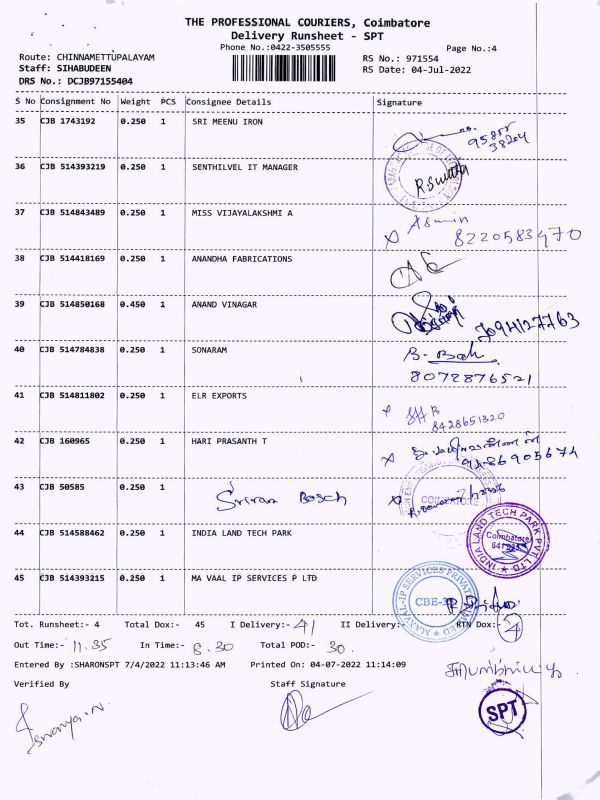 THE PROFESSIONAL COURIERS, Coimbatore
Delivery Runsheet - SPT
Phone No.:0422-3505555
Page No.:4
Route: CHINNAMETTUPALAYAM
RS No.: 971554
Staff: SIHABUDEEN
RS Date: 04-Jul-2022
DRS No.: DCJB97155404
S No Consignment No Weight PCS Consignee Details Signature
35 CJB 1743192 0.250 1 SRI MEENU IRON
95855
38204
36 CJB 514393219 0.250 1 SENTHILVEL IT MANAGER
37 CJB 514843489 0.250 1 MISS VIJAYALAKSHMI A
8220583470
38 CJB 514418169 0.250 1 ANANDHA FABRICATIONS
39 CJB 514850168 0.450 1 ANAND VINAGAR
40 CJB 514784838 0.250 1 SONARAM
8072876521
41 CJB 514811802 0.250 1 ELR EXPORTS
8428651320
42 CJB 160965 0.250 1 HARI PRASANTH T
43 CJB 50585 0.250 1 Sriram Bosch
44 CJB 514588462 0.250 1 INDIA LAND TECH PARK
INDIA LAND TECH PARK PVT LTD
Coimbatore
45 CJB 514393215 0.250 1 MA VAAL IP SERVICES P LTD
MAXVAL-IP SERVICES PRIVATE LIMITED
Tot. Runsheet:- 4 Total Dox:- 45 I Delivery:- 41 II Delivery:- RTN Dox:- 4
Out Time:- 11.35 In Time:- 6.30 Total POD:- 30
Entered By :SHARONSPT 7/4/2022 11:13:46 AM Printed On: 04-07-2022 11:14:09
Verified By Staff Signature
SPT